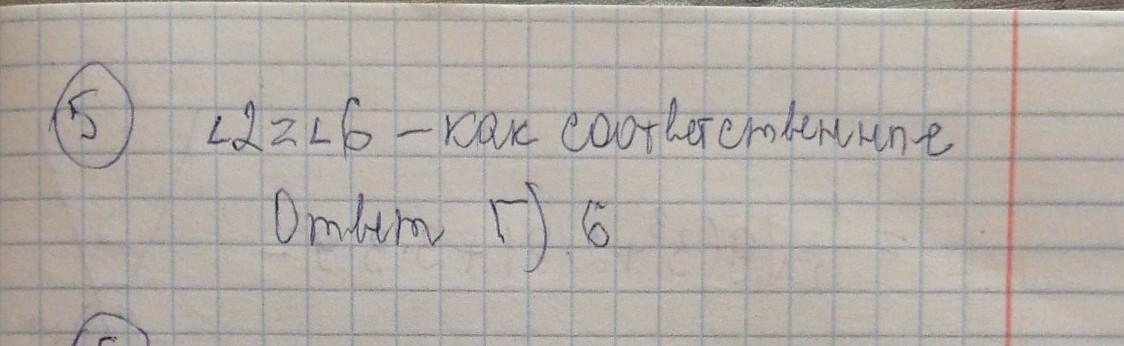 5 ∠2=∠6 – как соответственные
Ответ Г) 6